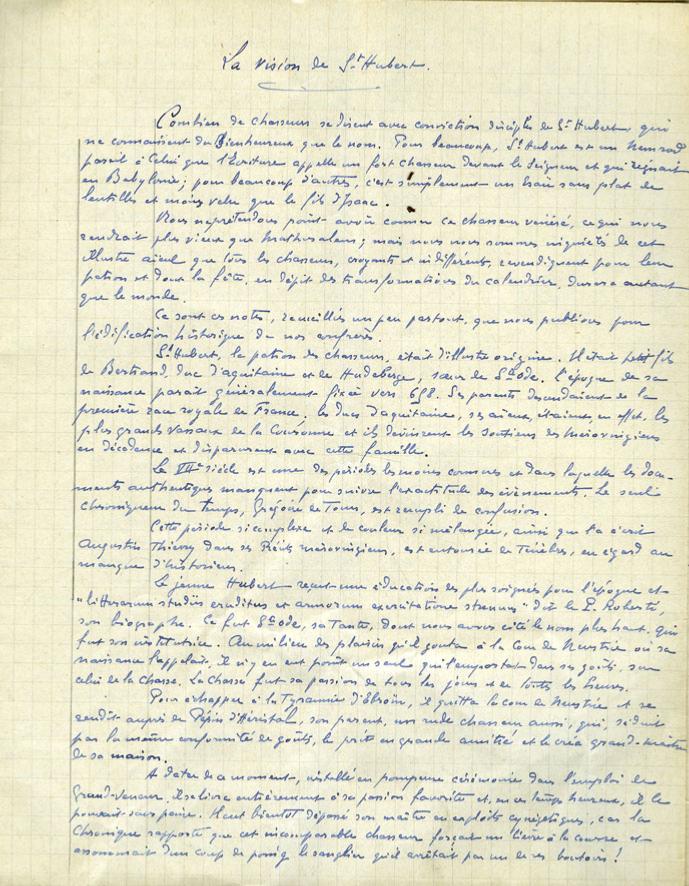 La vision de St Hubert.
Combien de chasseurs se disent avec conviction disciples de St Hubert qui
ne connaissent du Bienheureux que le nom. Pour beaucoup, St Hubert est un Nemrod
pareil à Celui que l'Ecriture appelle un fort chasseur devant le Seigneur et qui régnait
en Babylonie; pour beaucoup d'autres, c'est simplement un Esaü sans plat de
lentilles et moins velu que le fils d'Isaac.
Nous ne prétendons point avoir connu ce chasseur vénéré, ce qui nous
rendrait plus vieux que Mathusalem; mais nous nous sommes inquiétés de cet
illustre aieul que tous les chasseurs, croyants et indifférents, revendiquent pour leur
patron et dont la fête, en dépit des transformations du calendrier, durera autant
que le monde.
Ce sont ces notes, recueillies un peu partout, que nous publions pour
l'édification historique de nos confrères.
St Hubert, le patron des chasseurs, était d'illustre origine. Il était petit fils
de Bertrand, duc d'aquitaine et de Hudeberge, sœur de Ste Ode. l'époque de sa
naissance parait généralement fixée vers 658. Ses parents descendaient de la
première race royale de France. les ducs d'aquitaine, ses aieux, étaient en effet, les
plus grands vassaux de la Couronne et ils devinrent les soutiens des Mérovingiens
en décadence et disparurent avec cette famille.
Le VIIe siècle est une des périodes les moins connues et dans laquelle les docu-
ments authentiques manquent pour suivre l'exactitude des évènements. Le seul
chroniqueur du temps, Grégoire de Tours, est rempli de confusion.
Cette période si complexe et de couleur si mélangée, ainsi que l'a écrit
Augustin Thierry dans ses Récits mérovingiens, est entourée de Ténèbres, eu égard au
manque d'historiens.
Le jeune Hubert reçut une éducation des plus soignées pour l'époque et
"litterarum studiis eruditus et armorum exercitatione strenuus" dit le P. Roberti,
son biographe. Ce fut Ste Ode, sa Tante, dont nous avons cité le nom plus haut, qui
fut son institutrice. Au milieu des plaisirs qu'il gouta à la Cour de Neustrie où sa
naissance l'appelait, il n'y en eut point un seul qui l'emportat dans ses goûts, sur
celui de la Chasse. La Chasse fut sa passion de tous les jours et de toutes les heures.
Pour échapper à la Tyrannie d'Ebroïn, il quitta la cour de Neustrie et se
rendit auprès de Pépin d'Héristal, son parent, un rude chasseur aussi, qui, séduit
par la même conformité de goûts, le prit en grande amitié et le créa grand-maître
de sa maison.
A dater de ce moment, installé en pompeuse cérémonie dans l'emploi de
Grand-veneur, il se livra entièrement à sa passion favorite et, en ces temps heureux, il le
pouvait sans peine. Il eut bientôt dépassé son maître en exploits cynégétiques, car la
Chronique rapporte que cet incomparable chasseur forçait un lièvre à la course et
assommait d'un coup de poing le sanglier qu'il arrêtait par un de ses boutoirs!